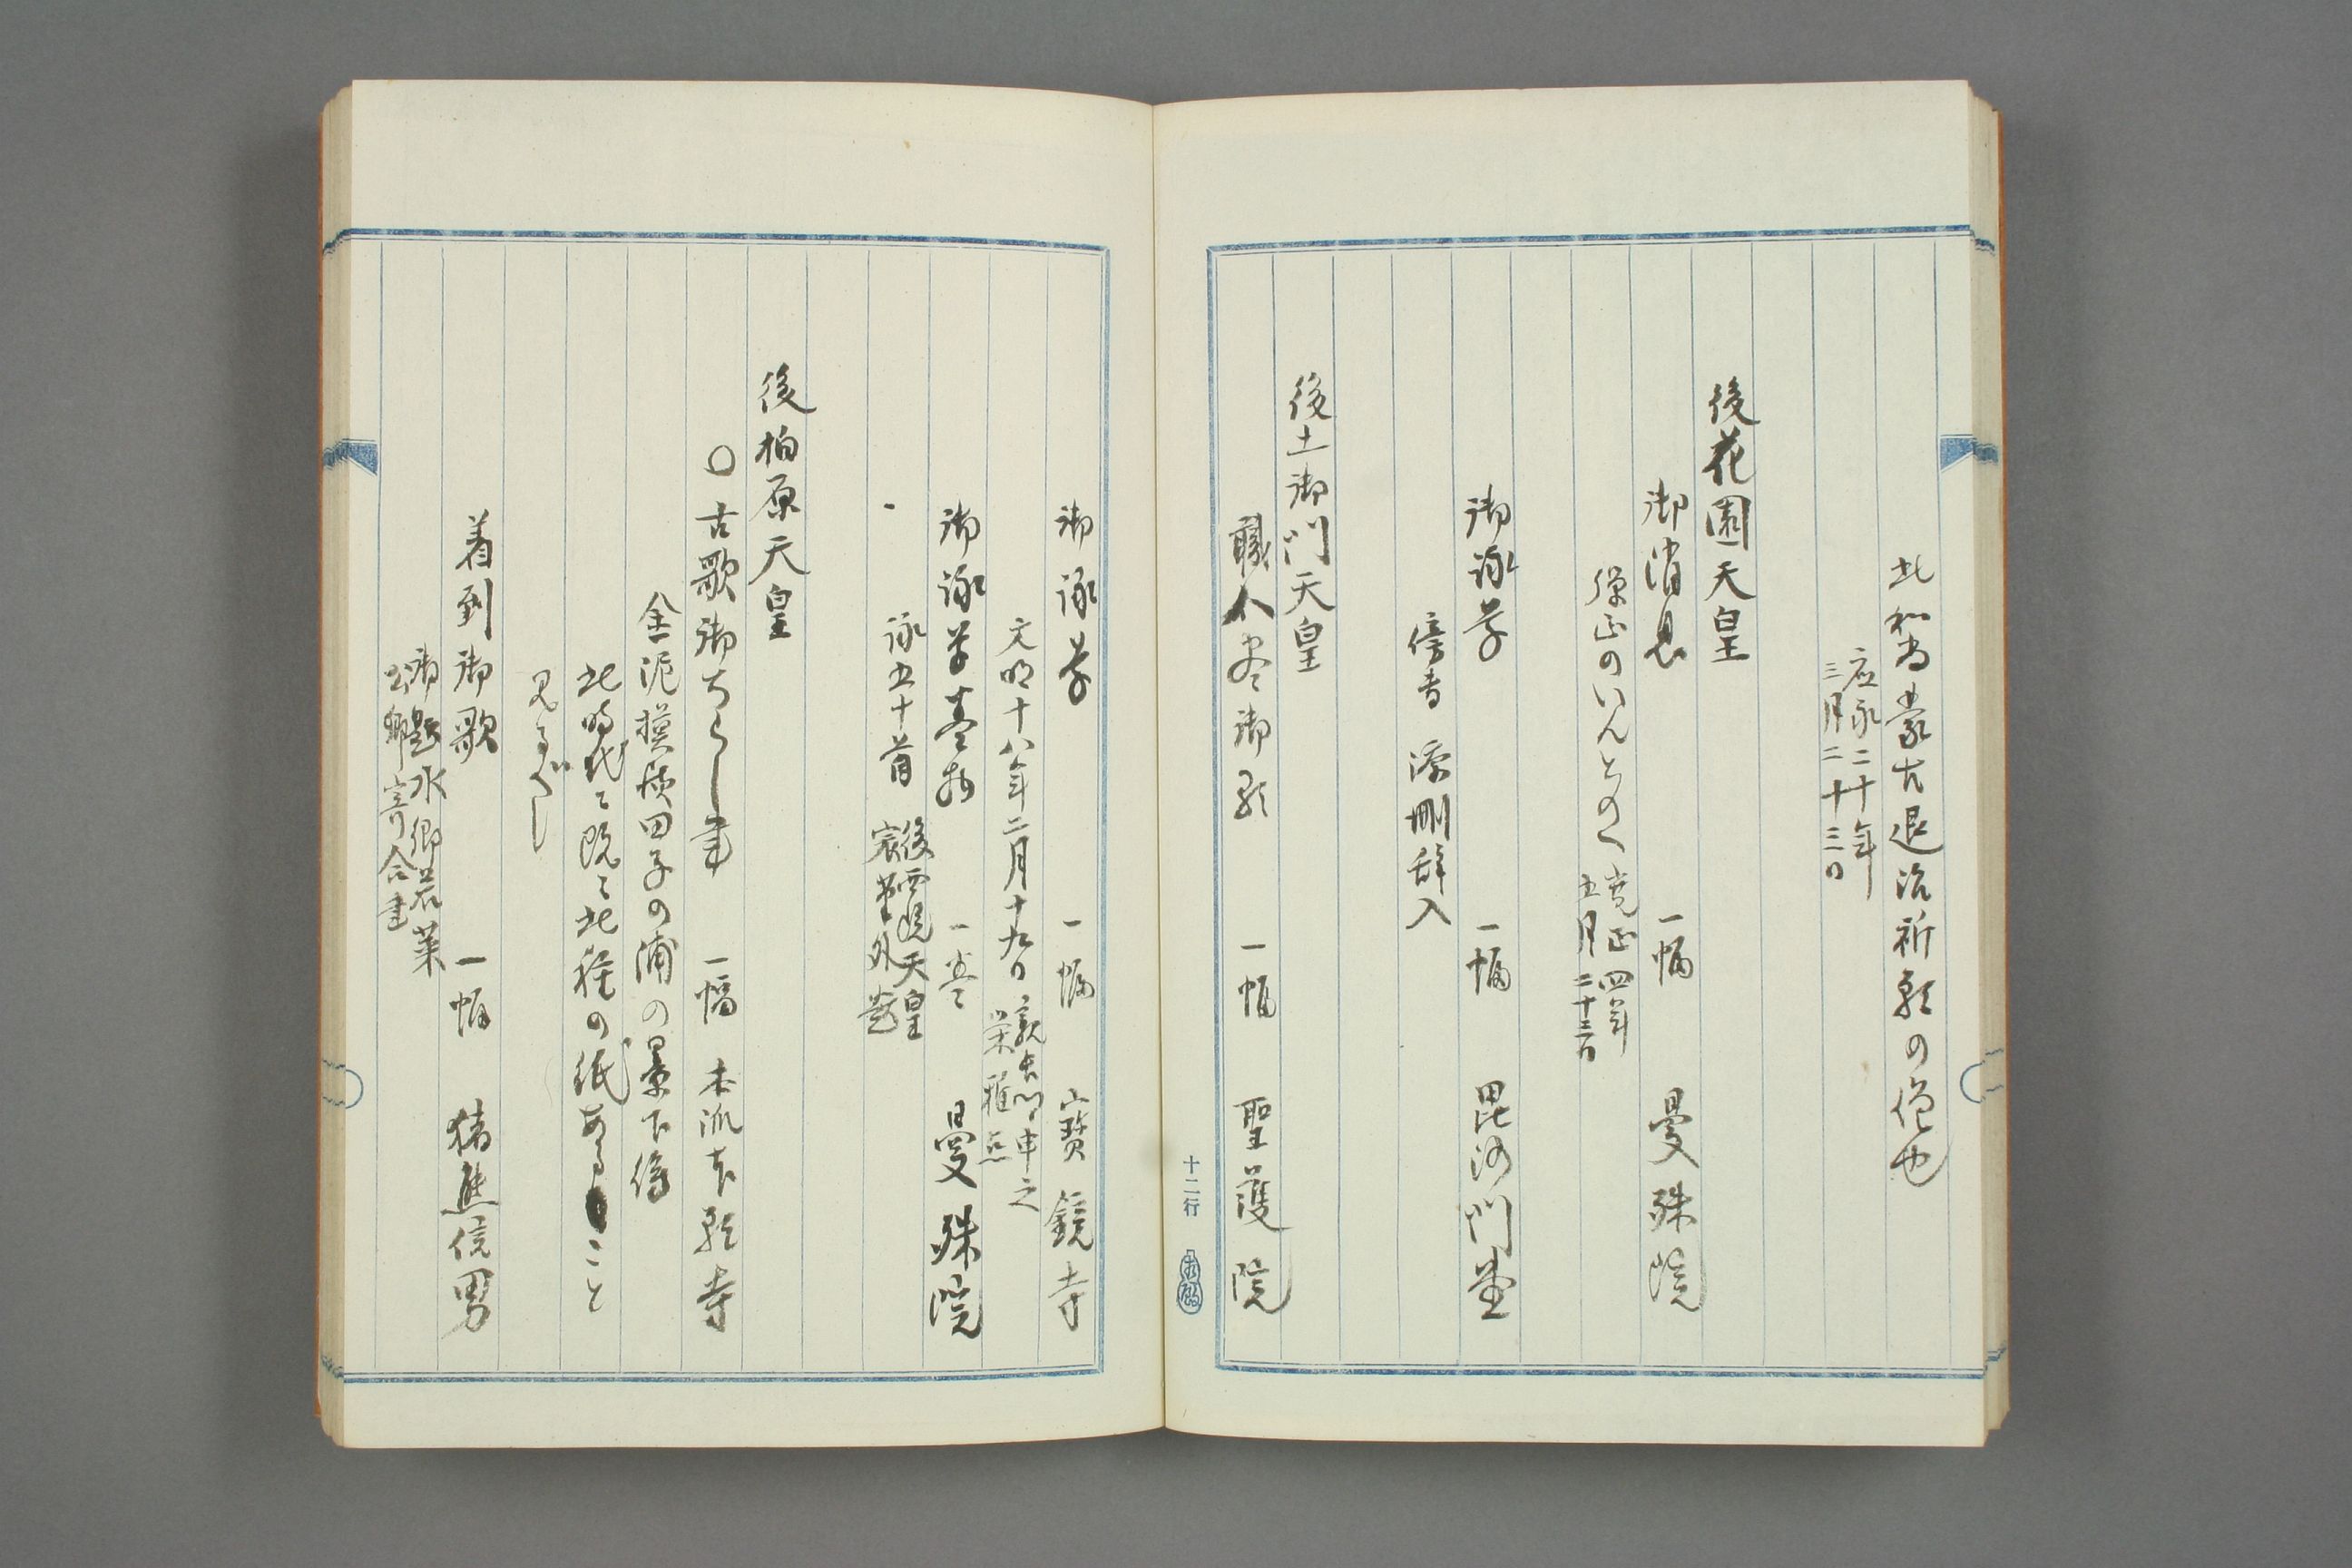 此和尚蒙古退治祈願の僧也
應永二十年
三月二十三日
後花園天皇
御消息 一幅 曼殊院
寛正四年
五月二十三日
御詠草 一幅 毘沙門堂
傍書 添刪辞入
後土御門天皇
職人尽御影 一幅 聖護院
十二行
御詠草 一幅 寶鏡寺
文明十八年二月十九日
栄雅点
御詠草 一巻 曼殊院
詠五十首
後 天皇
宸筆外題
後柏原天皇
○古歌御ちらし書 一幅 本派本願寺
金泥模様田子の浦の景下得
此時代ニ既ニ此種の紙あること
見るべし
着到御歌 一幅 猪熊信男
御題水郷若菜
公卿寄合書